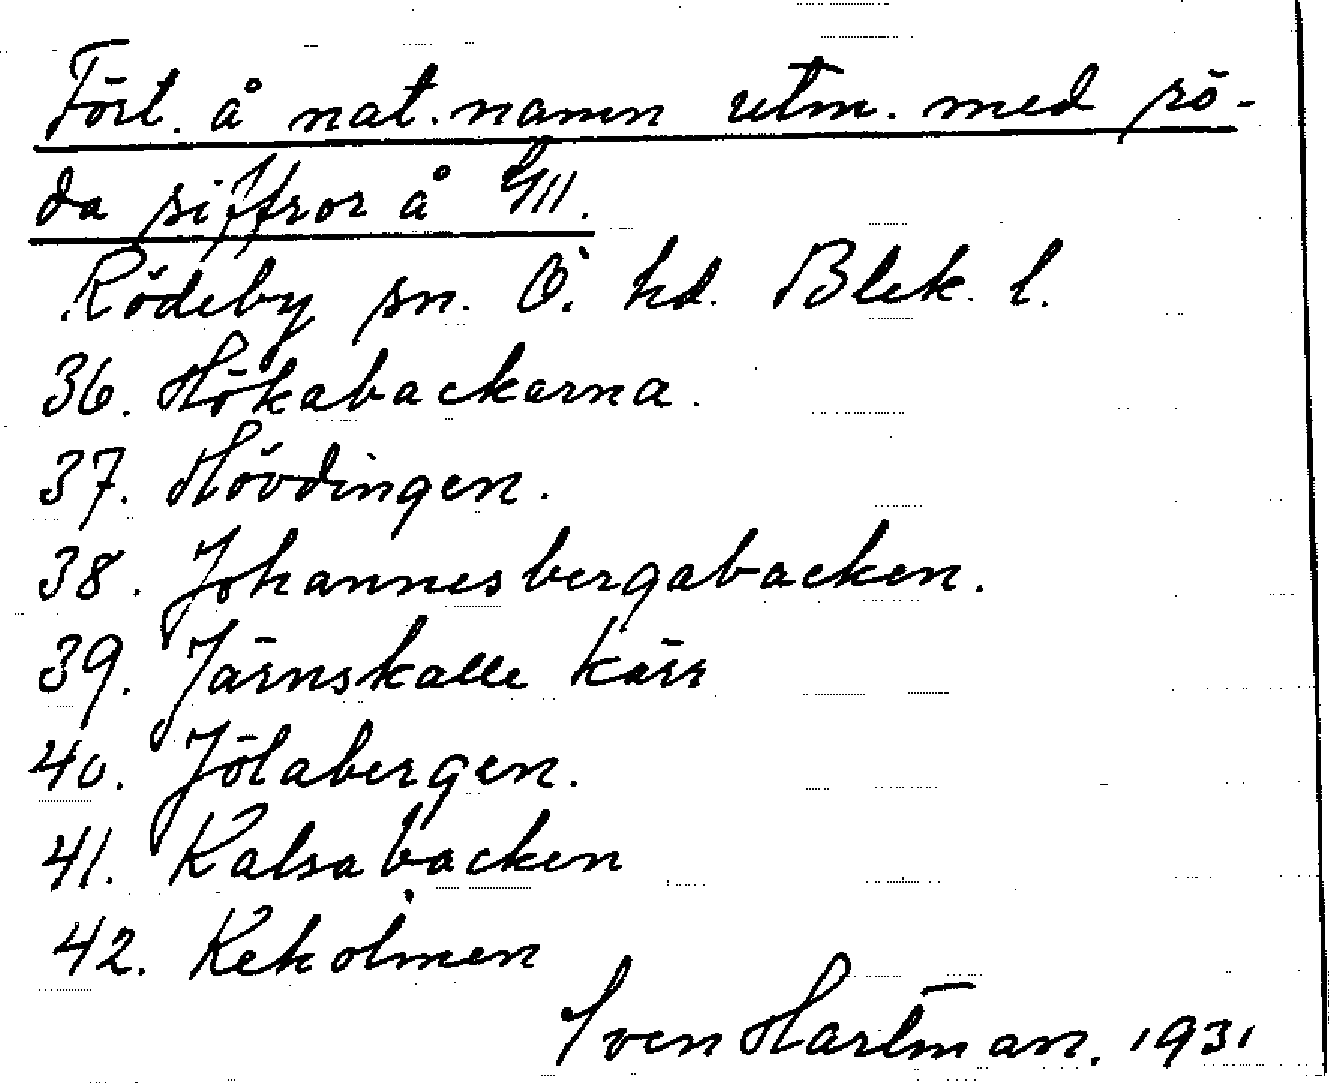 Fört. å nat. namn utm. med rö-
da siffror å G/III.
Rödeby sn. Ö. hd. Blek. l.
36. Hökabackarna.
37. Hövdingen.
38. Johannesbergabacken.
39. Järnskalle kärr
40. Jölabergen.
41. Kalsabacken
42. Kekolmen
Sven Hartman. 1931